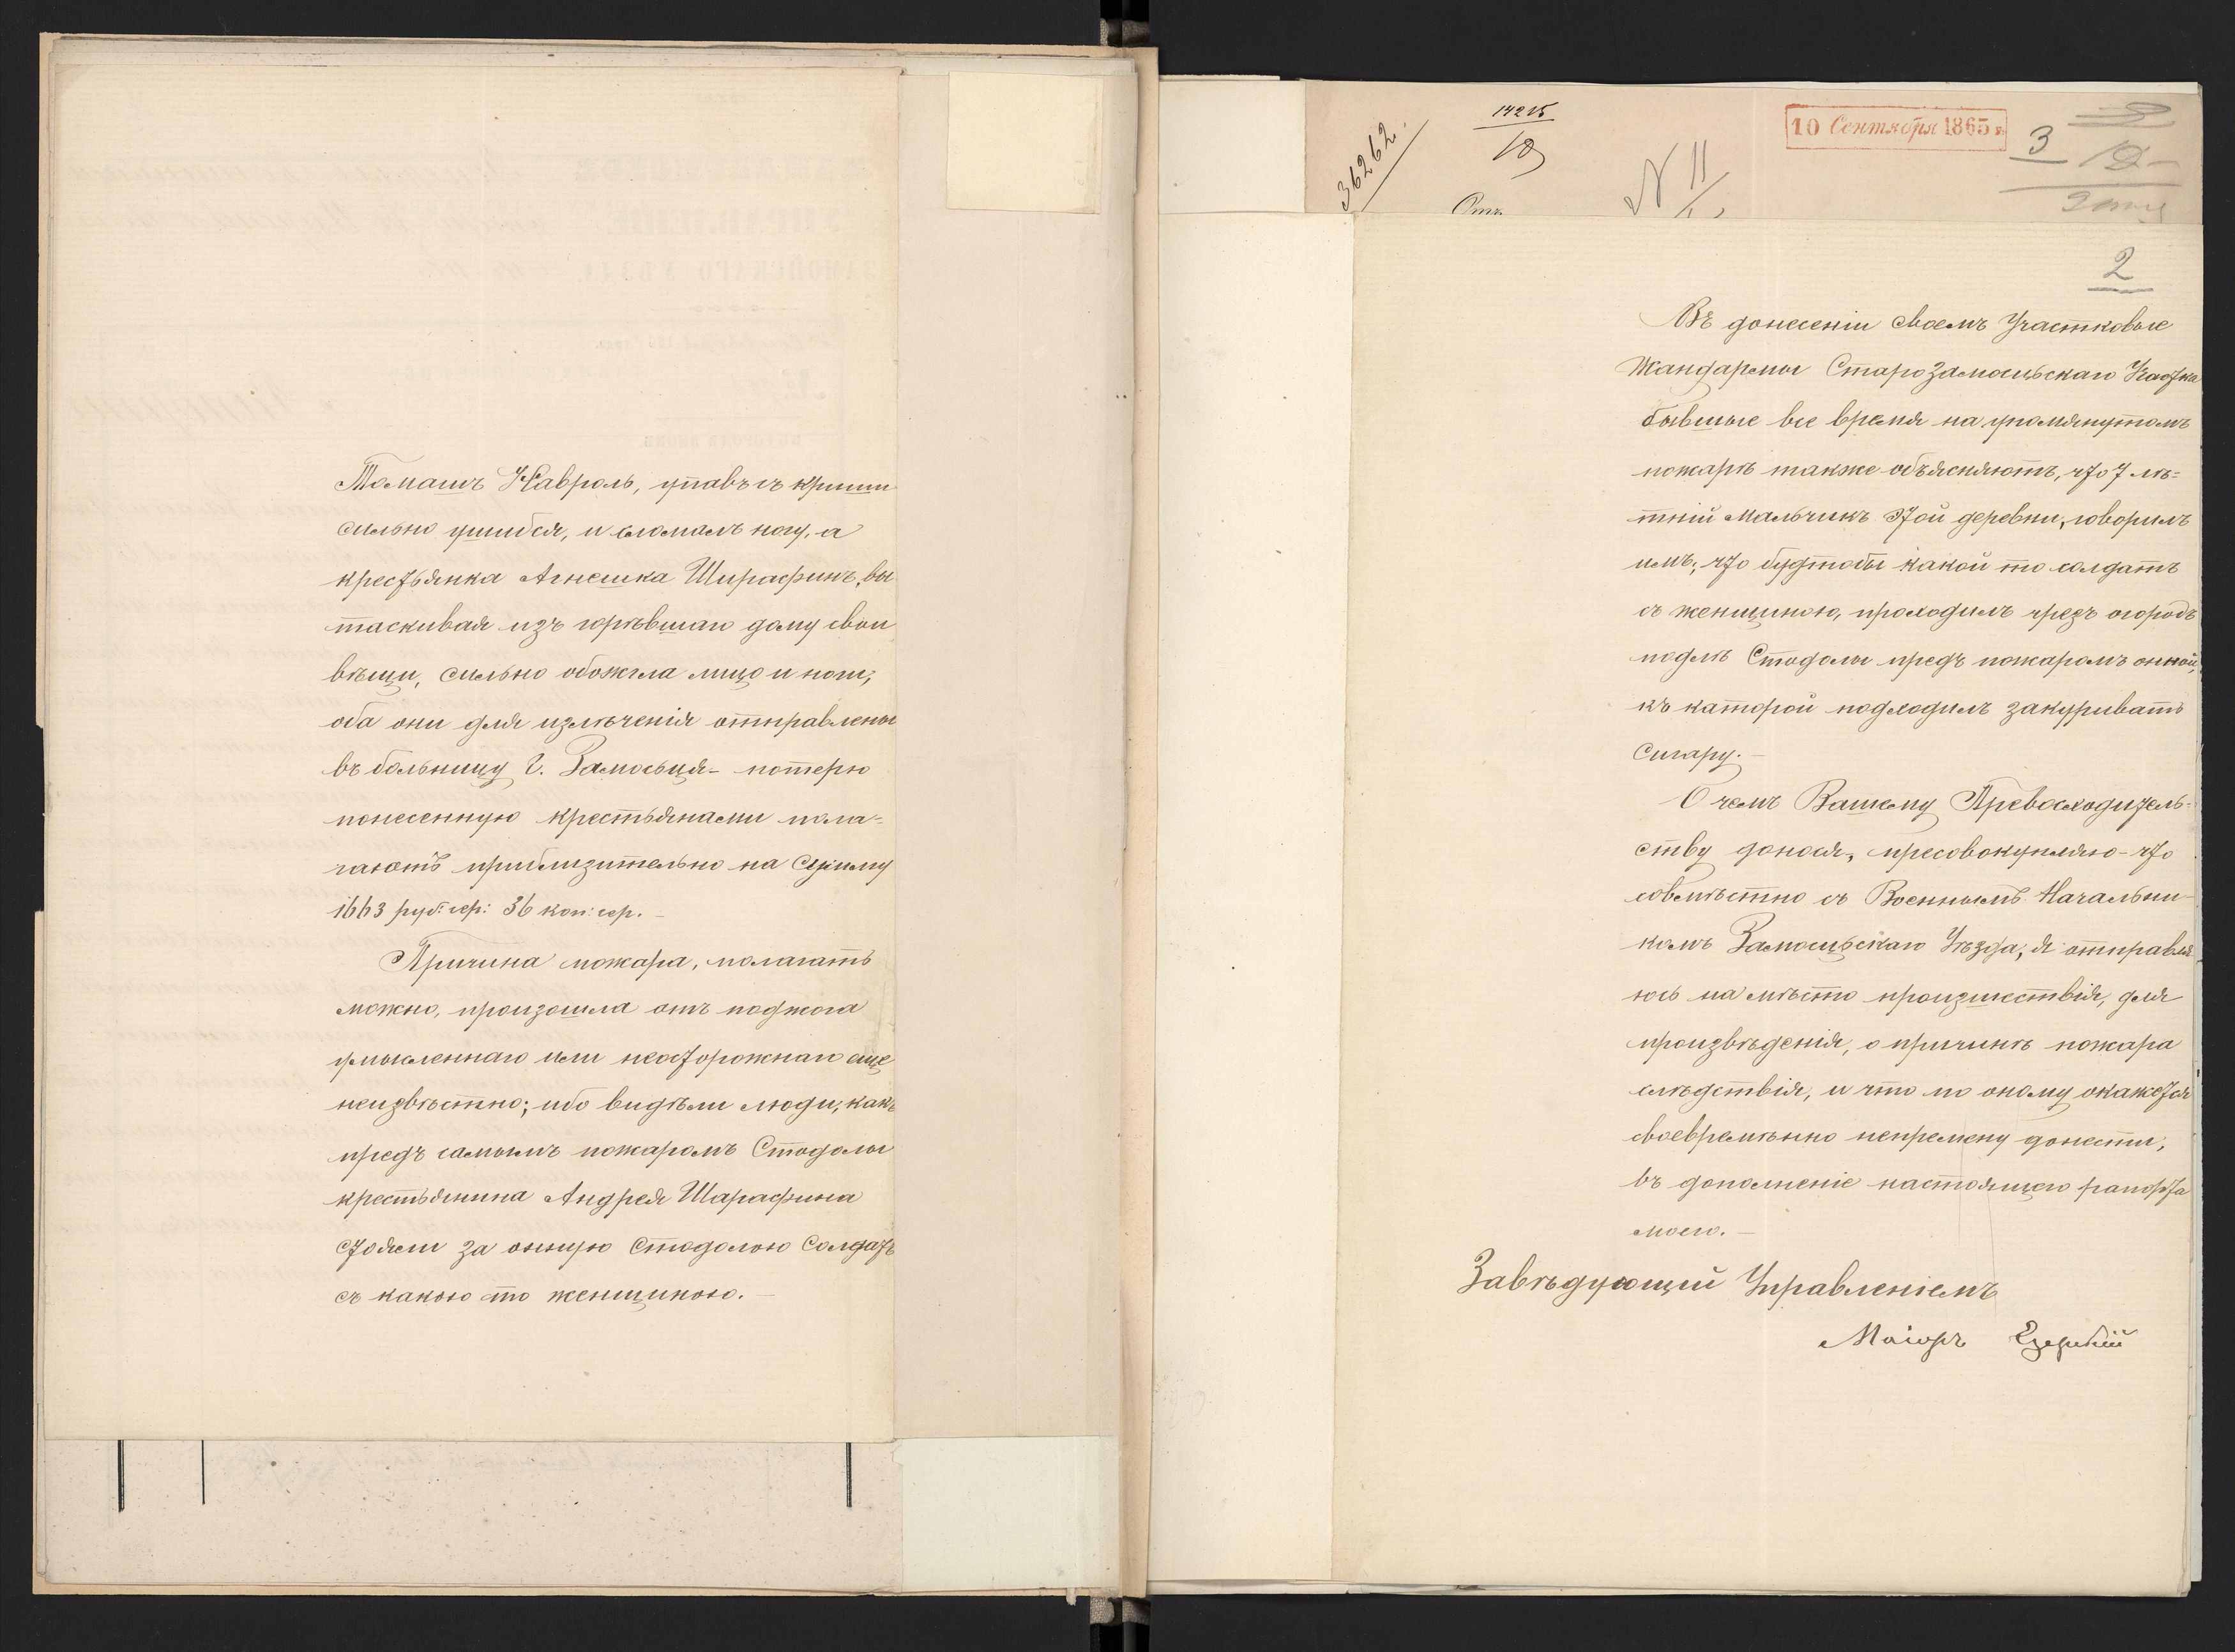 Томашъ Кавроль, упавъ съ крыши
сильно ушибся, и сломалъ ногу, а
крестьянка Агнешка Ширафинъ, вы
таскивая изъ горѣвшаго дому свои
вѣщи, сильно обожгла лицо и ноги;
оба они для излѣченія отправлены
въ больницу г. Замосьця – потерю
понесенную крестьянами пола=
гаютъ приблизительно на сумму
1663 руб: сер: 36 коп: сер. –
Причина пожара, полагать
можно, произошла отъ поджога
умысленнаго или неосторожнаго еще
неизвѣстно; ибо видѣли люди, какъ
предъ самымъ пожаромъ Стодолы
крестьянина Андрея Шарафина
стояли за онною Стодолою Солдатъ
съ какою то женщиною. –
36262.
14215
10 Сентября 1865 г.
3
N 11
Отъ
2
Въ донесеніи своемъ Участковые
Жандармы Старозамосцьскаго Участка
бывшые все время на упомянутомъ
пожарѣ также объясняютъ, что 7 лѣ=
тній мальчикъ этой деревни, говорилъ
имъ, что будтобы какой то солдатъ
съ женщиною, проходилъ чрезъ огородъ
подлѣ Стодолы предъ пожаромъ онной,
къ каторой подходилъ закуривать
сигару. –
О чемъ Вашему Превосходитель=
ству донося, пресовокупляю – что
совмѣстно съ Военнымъ Начальни–
комъ Замосцьскаго Уѣзда, я отправля
юсь на мѣсто произшествія, для
произвѣденія, о причинѣ пожара
слѣдствія, и что по оному окажется
своевремѣнно непремену донести,
въ дополненіе настоящего рапорта
моего. –
Завѣдующій Управленіемъ
Маіоръ